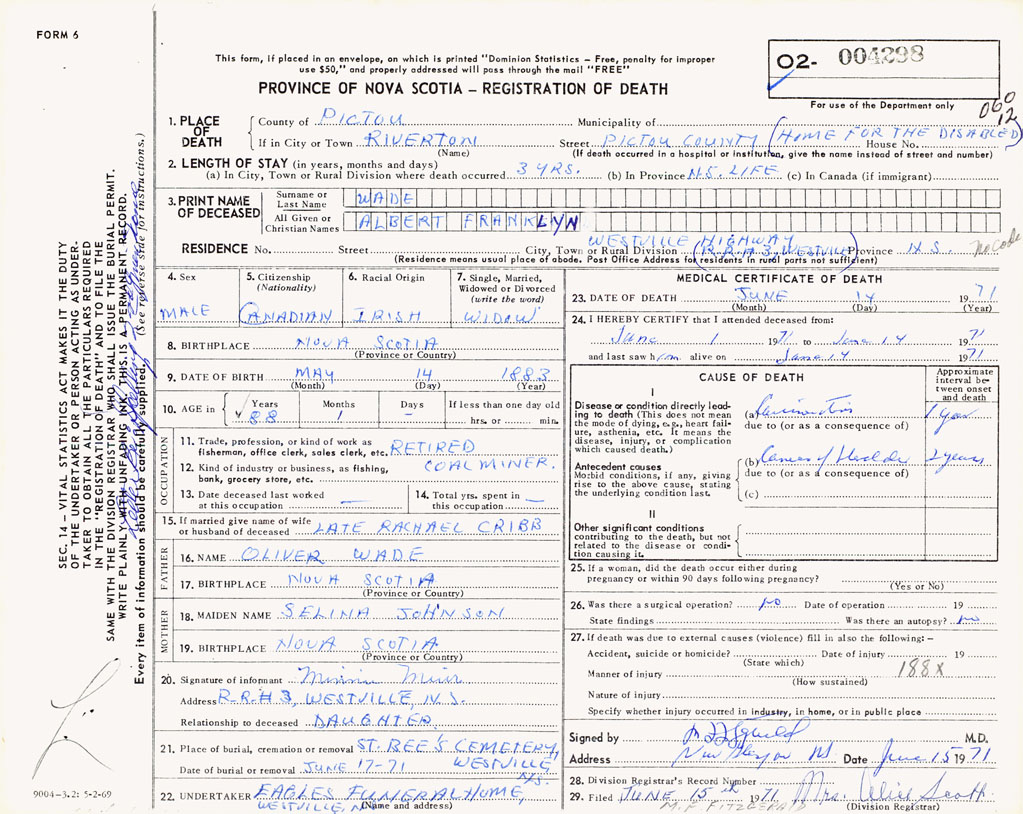 FORM 6
This form, if placed in an envelope, on which is printed "Dominion Statistics – Free, penalty for improper
use $50," and properly addressed will pass through the mail "FREE"
O2- 004298
For use of the Department only
060
12
PROVINCE OF NOVA SCOTIA – REGISTRATION OF DEATH
1. PLACE OF DEATH
County of PICTOU Municipality of
If in City or Town RIVERTON Street PICTOU COUNTY (HOME FOR THE DISABLED) House No.
(Name) (If death occurred in a hospital or institution, give the name instead of street and number)
2. LENGTH OF STAY (in years, months and days)
(a) In City, Town or Rural Division where death occurred 3 YRS. (b) In Province N.S. LIFE (c) In Canada (if immigrant)
3. PRINT NAME OF DECEASED
Surname or Last Name WADE
All Given or Christian Names ALBERT FRANKLYN
RESIDENCE No. Street City, Town or Rural Division WESTVILLE HIGHWAY (R.R.#3, WESTVILLE) Province N.S. no code
(Residence means usual place of abode. Post Office Address for residents in rural parts not sufficient)
4. Sex
MALE
5. Citizenship
(Nationality)
CANADIAN
6. Racial Origin
IRISH
7. Single, Married,
Widowed or Divorced
(write the word)
WIDOW
8. BIRTHPLACE NOVA SCOTIA
(Province or Country)
9. DATE OF BIRTH MAY 14 1883
(Month) (Day) (Year)
10. AGE in Years Months Days If less than one day old
88 1 – hrs. or min.
OCCUPATION
11. Trade, profession, or kind of work as
fisherman, office clerk, sales clerk, etc. RETIRED
12. Kind of industry or business, as fishing, COAL MINER.
bank, grocery store, etc.
13. Date deceased last worked
at this occupation —
14. Total yrs. spent in
this occupation —
15. If married give name of wife
or husband of deceased LATE RACHAEL CRIBB
FATHER
16. NAME OLIVER WADE
17. BIRTHPLACE NOVA SCOTIA
(Province or Country)
MOTHER
18. MAIDEN NAME SELINA JOHNSON
19. BIRTHPLACE NOVA SCOTIA
(Province or Country)
20. Signature of informant Minnie Muir
Address R.R#3, WESTVILLE, N.S.
Relationship to deceased DAUGHTER
21. Place of burial, cremation or removal ST. BEE'S CEMETERY,
WESTVILLE, N.S.
Date of burial or removal JUNE 17-71
22. UNDERTAKER EAGLES FUNERAL HOME,
WESTVILLE, N.S.
(Name and address)
MEDICAL CERTIFICATE OF DEATH
23. DATE OF DEATH JUNE 14 1971
(Month) (Day) (Year)
24. I HEREBY CERTIFY that I attended deceased from:
June 1 1971 to June 14 1971
and last saw him alive on June 14 1971
CAUSE OF DEATH
Approximate
interval be-
tween onset
and death
I
Disease or condition directly lead-
ing to death (This does not mean
the mode of dying, e.g., heart fail-
ure, asthenia, etc. It means the
disease, injury, or complication
which caused death.)
(a) 1 year
due to (or as a consequence of)
Antecedent causes
Morbid conditions, if any, giving
rise to the above cause, stating
the underlying condition last.
(b) Cancer of Bladder 2 years
due to (or as a consequence of)
(c)
II
Other significant conditions
contributing to the death, but not
related to the disease or condi-
tion causing it.
25. If a woman, did the death occur either during
pregnancy or within 90 days following pregnancy?
(Yes or No)
26. Was there a surgical operation? no Date of operation 19
State findings Was there an autopsy? no
27. If death was due to external causes (violence) fill in also the following: –
Accident, suicide or homicide? Date of injury 19
(State which)
Manner of injury 188X
(How sustained)
Nature of injury
Specify whether injury occurred in industry, in home, or in public place
Signed by M.D.
Address New Glasgow NS Date June 15 1971
28. Division Registrar's Record Number
29. Filed JUNE 15th 1971 Mrs. Alice Scott
M.F. FITZGERALD (Division Registrar)
SEC. 14 – VITAL STATISTICS ACT MAKES IT THE DUTY
OF THE UNDERTAKER OR PERSON ACTING AS UNDER-
TAKER TO OBTAIN ALL THE PARTICULARS REQUIRED
IN THE "REGISTRATION OF DEATH" AND TO FILE THE
SAME WITH THE DIVISION REGISTRAR WHO SHALL ISSUE THE BURIAL PERMIT.
WRITE PLAINLY WITH UNFADING INK. THIS IS A PERMANENT RECORD.
Every item of information should be carefully supplied. (See reverse side for instructions.)
9004-3.2: 5-2-69